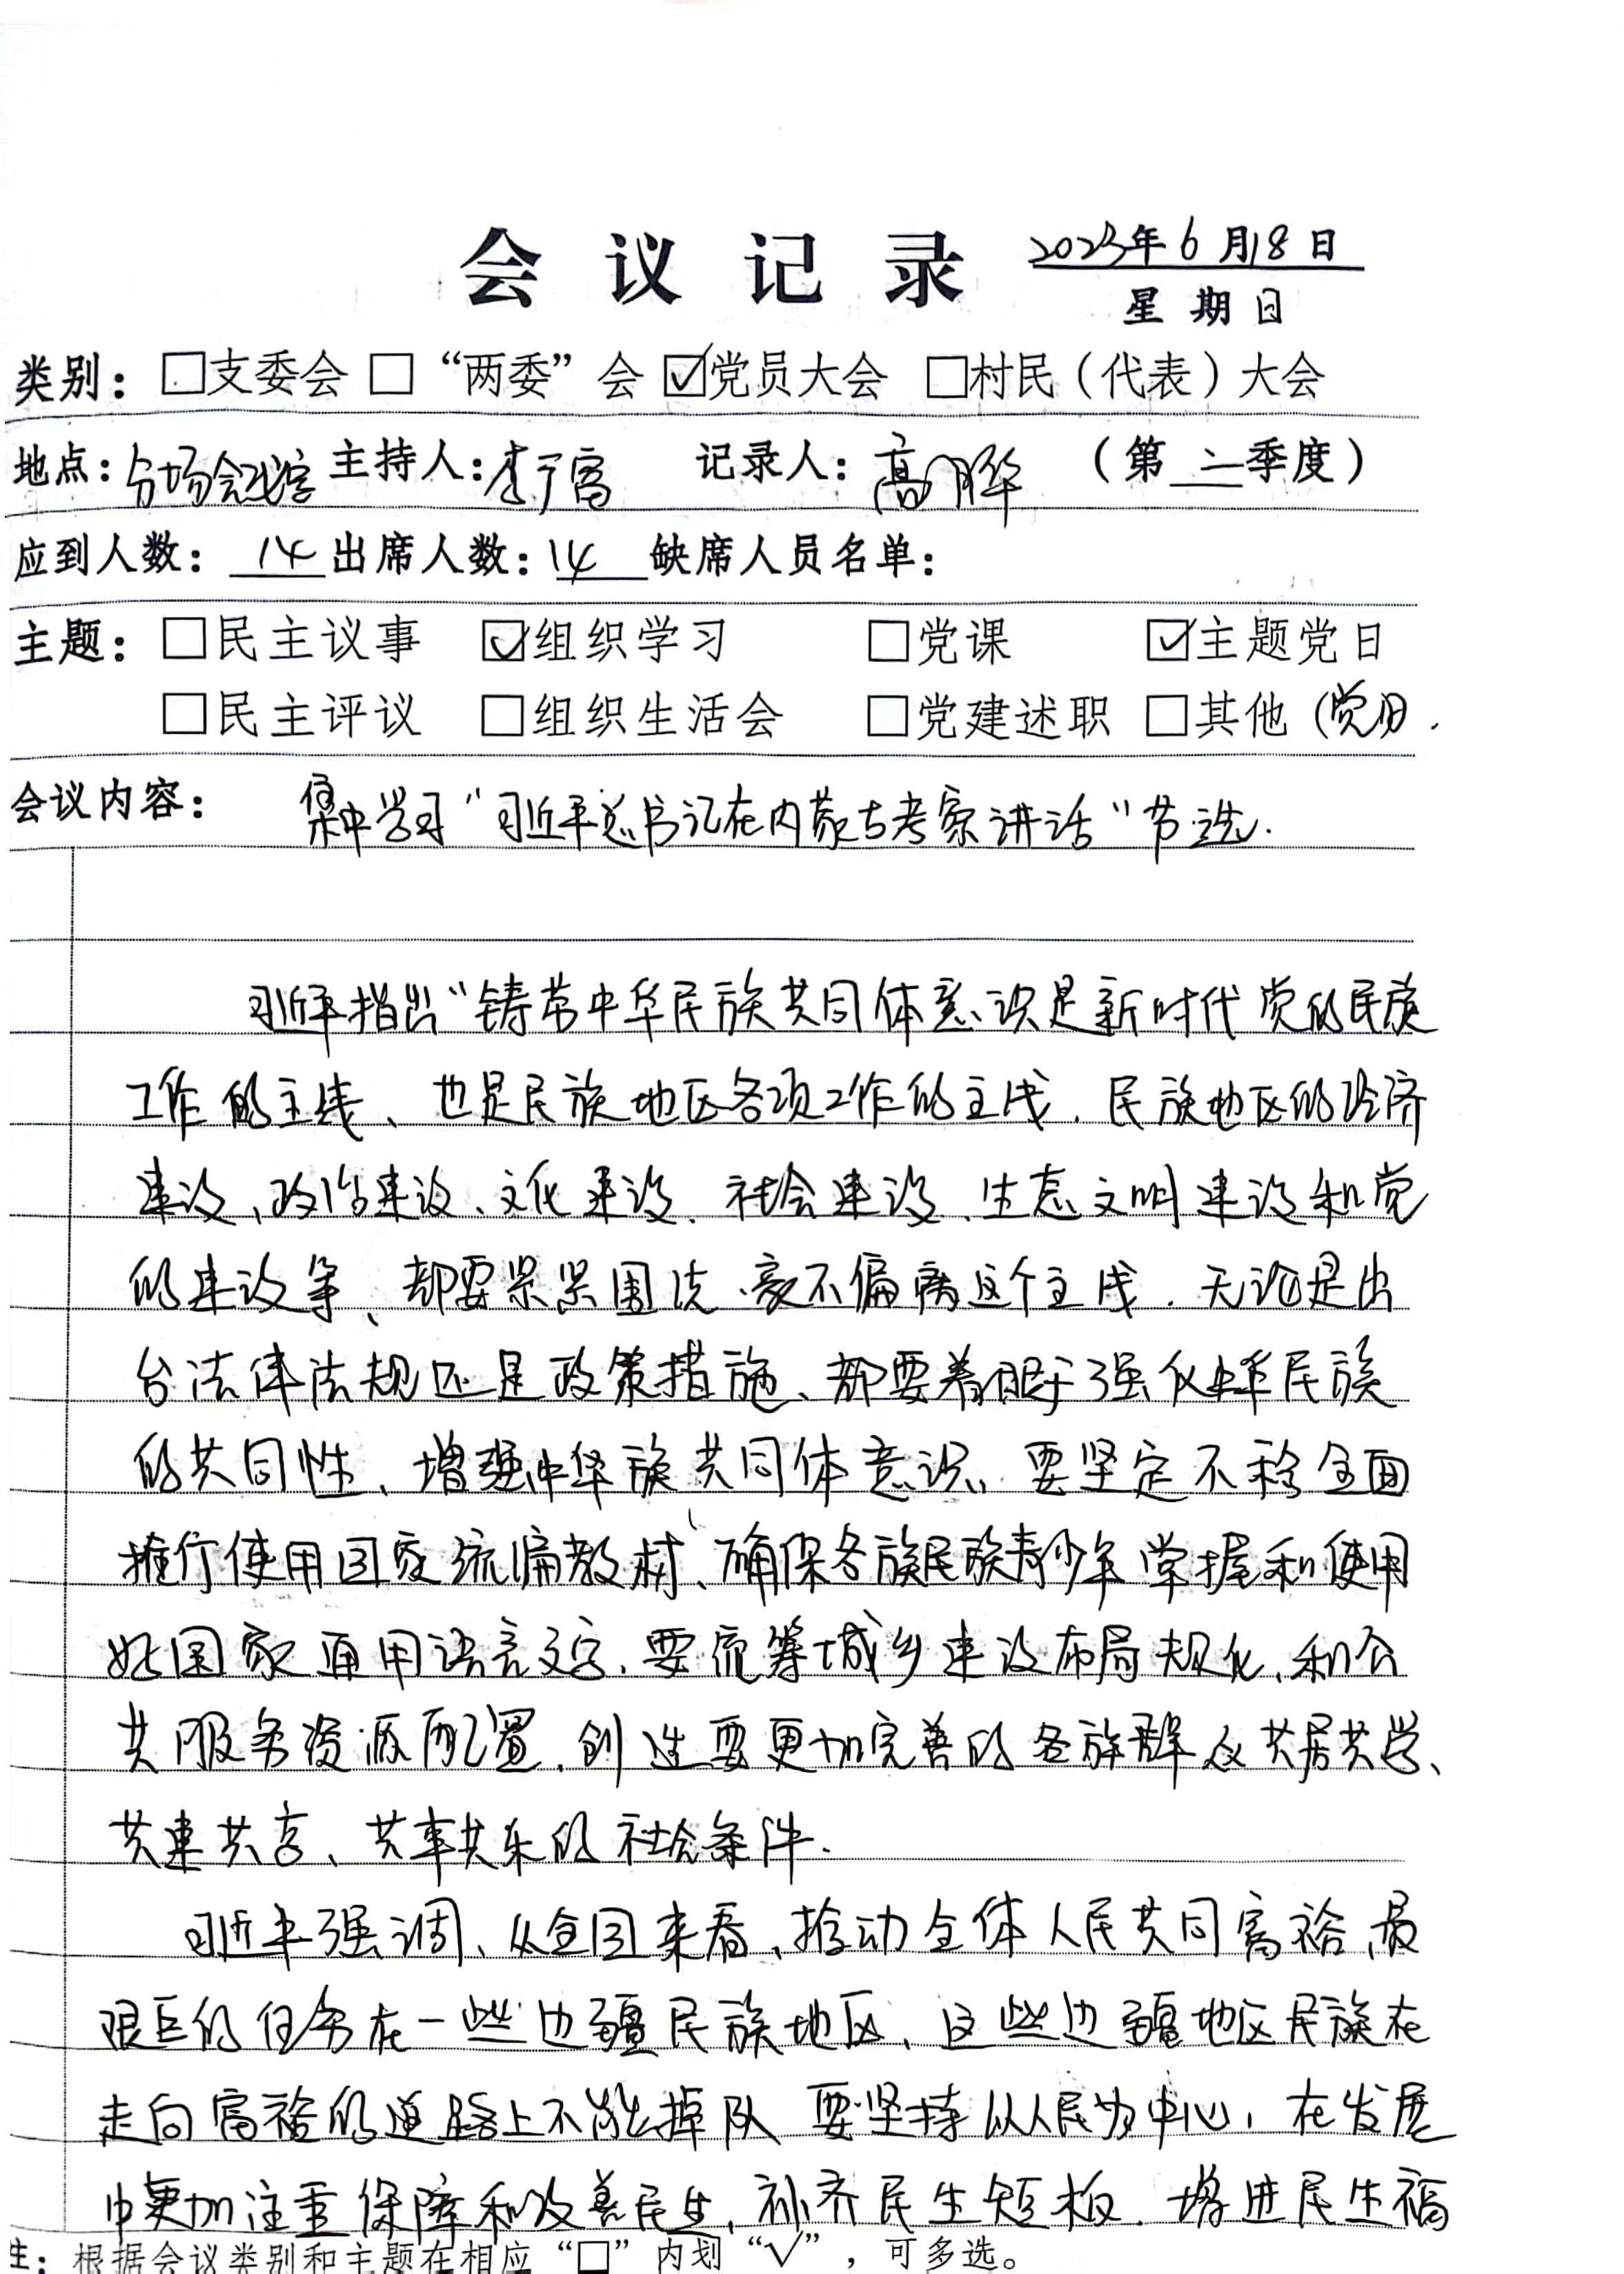 会议记录 2023年6月18日
星期日
类别：□支委会 □“两委”会 ☑党员大会 □村民（代表）大会
地点：分场会议室 主持人：李广富 记录人：高晔 （第二季度）
应到人数：14 出席人数：14 缺席人员名单：
主题：□民主议事 ☑组织学习 □党课 ☑主题党日
□民主评议 □组织生活会 □党建述职 □其他（党日）.
会议内容： 集中学习“习近平总书记在内蒙古考察讲话”节选.
习近平指出“铸牢中华民族共同体意识是新时代党的民族
工作的主线、也是民族地区各项工作的主线.民族地区的经济
建设、政治建设、文化建设、社会建设、生态文明建设和党
的建设等、都要紧紧围绕、毫不偏离这个主线.无论是出
台法律法规还是政策措施、都要着眼于强化中华民族
的共同性、增强中华族共同体意识、要坚定不移全面
推行使用国家统编教材、确保各族民族青少年掌握和使用
好国家通用语言文字、要统筹城乡建设布局规化、和公
共服务资源配置、创造要更加完善的各族群众共居共学、
共建共享、共事共乐的社会条件.
习近平强调、从全国来看、推动全体人民共同富裕、最
艰巨的任务在一些边疆民族地区、这些边疆地区民族在
走向富裕的道路上不能掉队 要坚持以人民为中心，在发展
中更加注重保障和改善民生、补齐民生短板.增进民生福
注：根据会议类别和主题在相应“□”内划“√”，可多选。